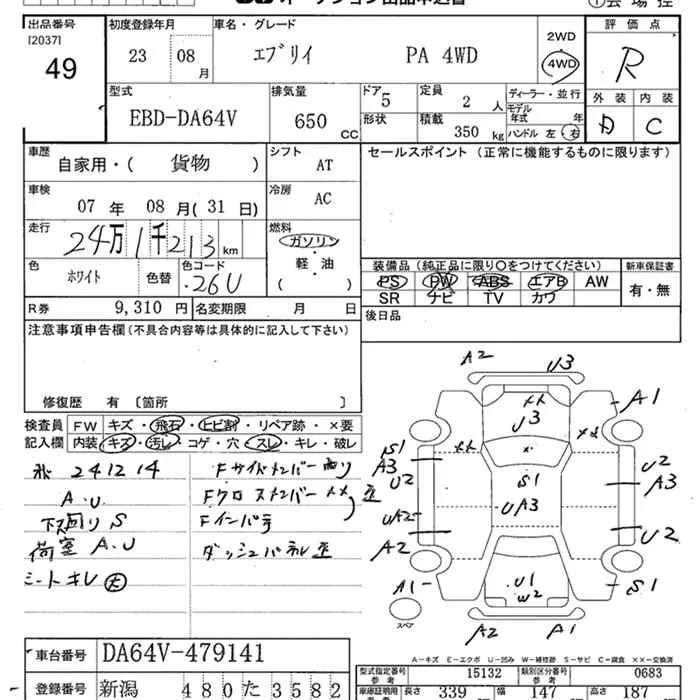 出品番号 初度登録年月 車名・グレード 評価点
[2037]
49
23 08月 エブリイ PA 4WD 2WD 4WD R
型式 排気量 ドア 5 定員 2 人 ディーラー・並行 外装 内装
EBD-DA64V 650 CC 形状 積載 350 kg モデル年式 年 ハンドル 左・右 D C
車歴 シフト セールスポイント(正常に機能するものに限ります)
自家用・( 貨物 ) AT
車検 冷房
07 年 08 月(31 日) AC
走行 燃料
24万1千213 km ガソリン
色 色コード 軽・油
ホワイト 色替 26U ( )
装備品(純正品に限り○をつけてください) 新車保証書
PS PW ABS エアB AW 有・無
SR ナビ TV カワ
R券 9,310 円 名変期限 月 日 後日品
注意事項申告欄(不具合内容等は具体的に記入して下さい)
修復歴 有 [箇所 ]
検査員 FW キズ・飛石・ヒビ割・リペア跡・×要
記入欄 内装 キズ・汚レ・コゲ・穴・スレ・キレ・破レ
241214
A.U
下回り S
荷室 A.U
シートキレ 大
Fサイドメンバー曲り
Fクロスメンバー XX
Fインパネ
ダッシュパネル歪
A2 U3
A1
XX
U3
XX XX
S1 A3 U2
S1
UA3
U2 A3
UA2
A2
U2
A1
U1
W2
S1
スペア
A2 A1
A-キズ E-エクボ U-凹み W-補修跡 S-サビ C-腐食 ××-交換済
車台番号 DA64V-479141
型式指定番号 参考 15132 類別区分番号 参考 0683
登録番号 新潟 480 た 3582
車庫証明用 長さ 339 幅 147 高さ 187